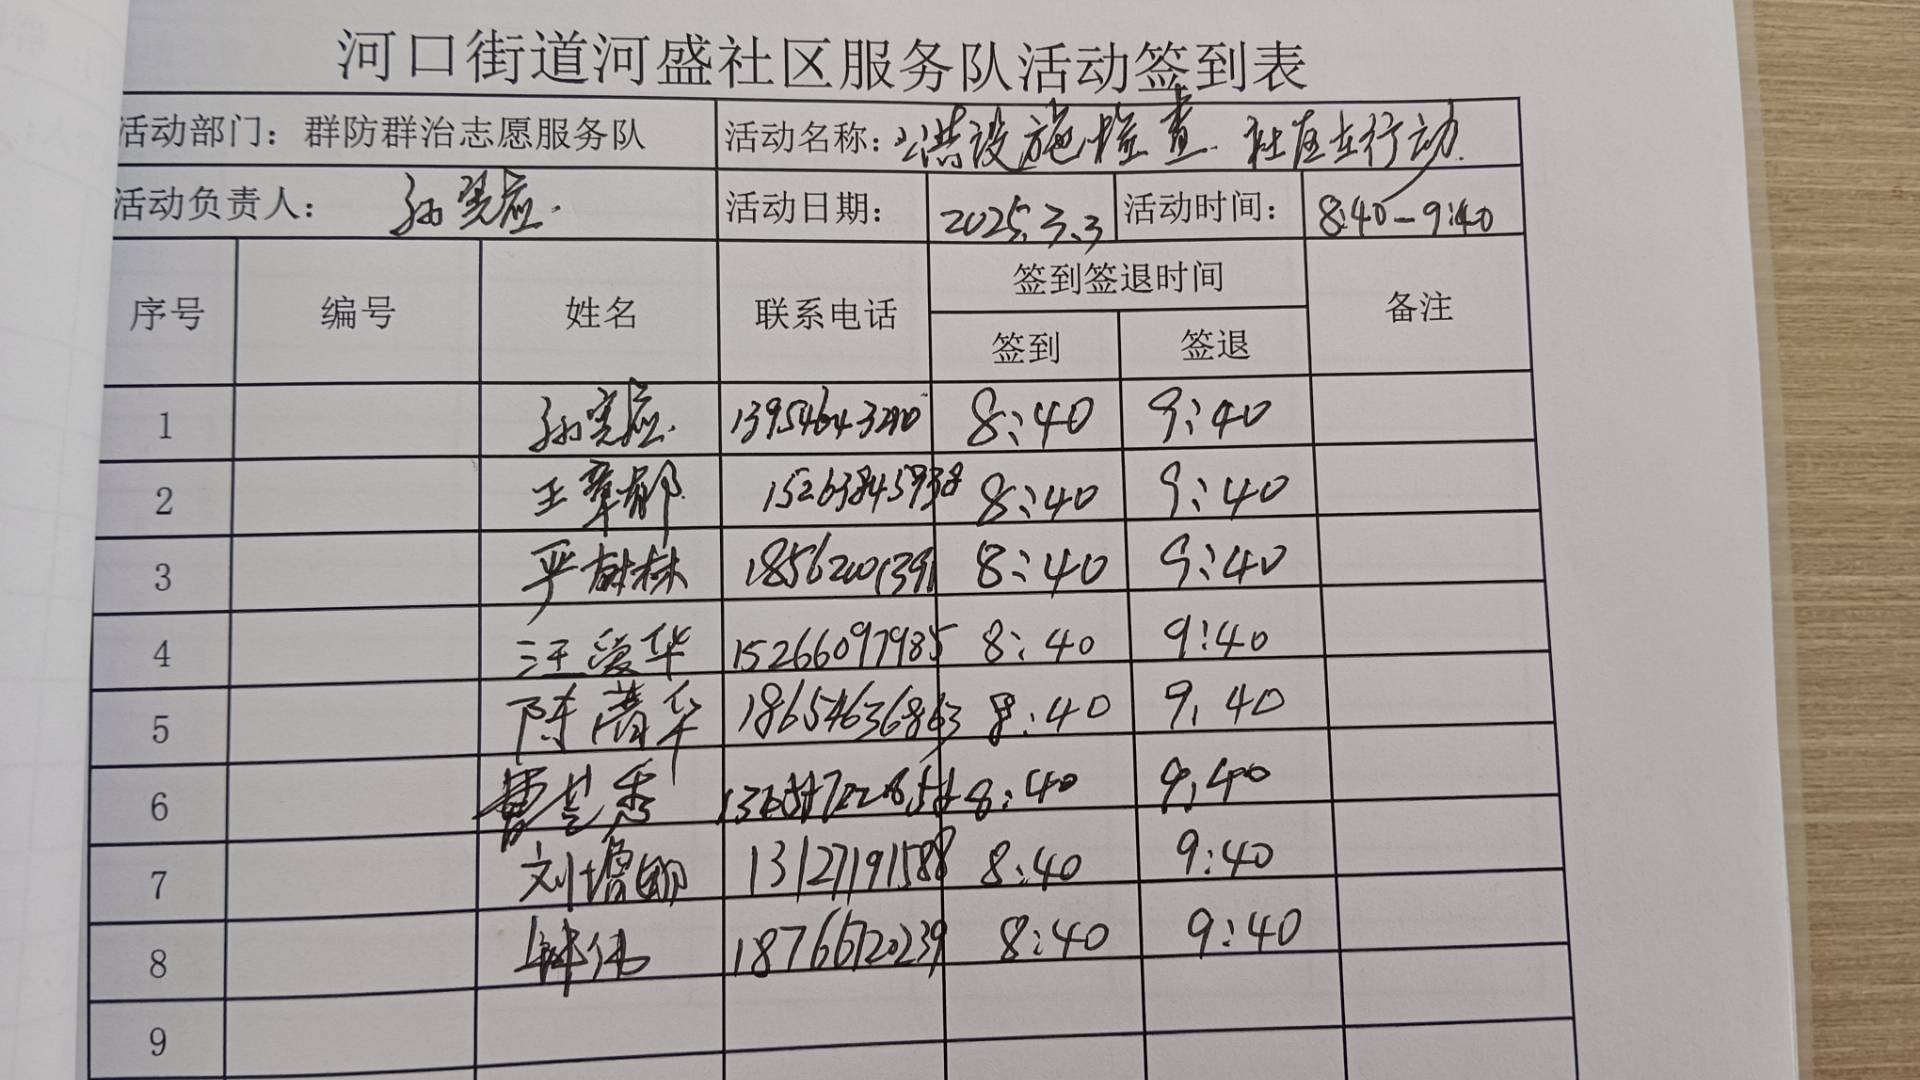 河口街道河盛社区服务队活动签到表
活动部门：群防群治志愿服务队 活动名称：公共设施检查 社区在行动
活动负责人： 活动日期： 2025.3.3 活动时间： 8:40-9:40
序号 编号 姓名 联系电话 签到签退时间 备注
签到 签退
1 13954643290 8:40 9:40
2 王章郁 15263845938 8:40 9:40
3 严树林 18562001391 8:40 9:40
4 汪爱华 15266097985 8:40 9:40
5 陈清华 18654636863 8:40 9.40
6 曹兰香 8:40 9.40
7 13127191588 8:40 9:40
8 钟伟 18766720239 8:40 9:40
9